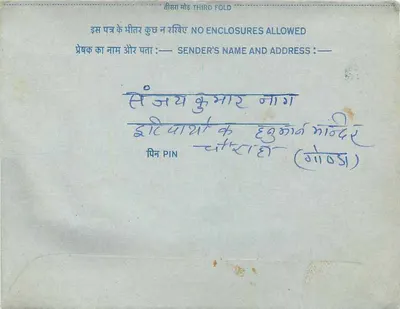 तीसरा मोड़ THIRD FOLD
इस पत्र के भीतर कुछ न रखिए NO ENCLOSURES ALLOWED
प्रेषक का नाम और पता :— SENDER'S NAME AND ADDRESS :—
संजय कुमार नाग
हनुमान मन्दिर
चौराहा (गोण्डा)
पिन PIN